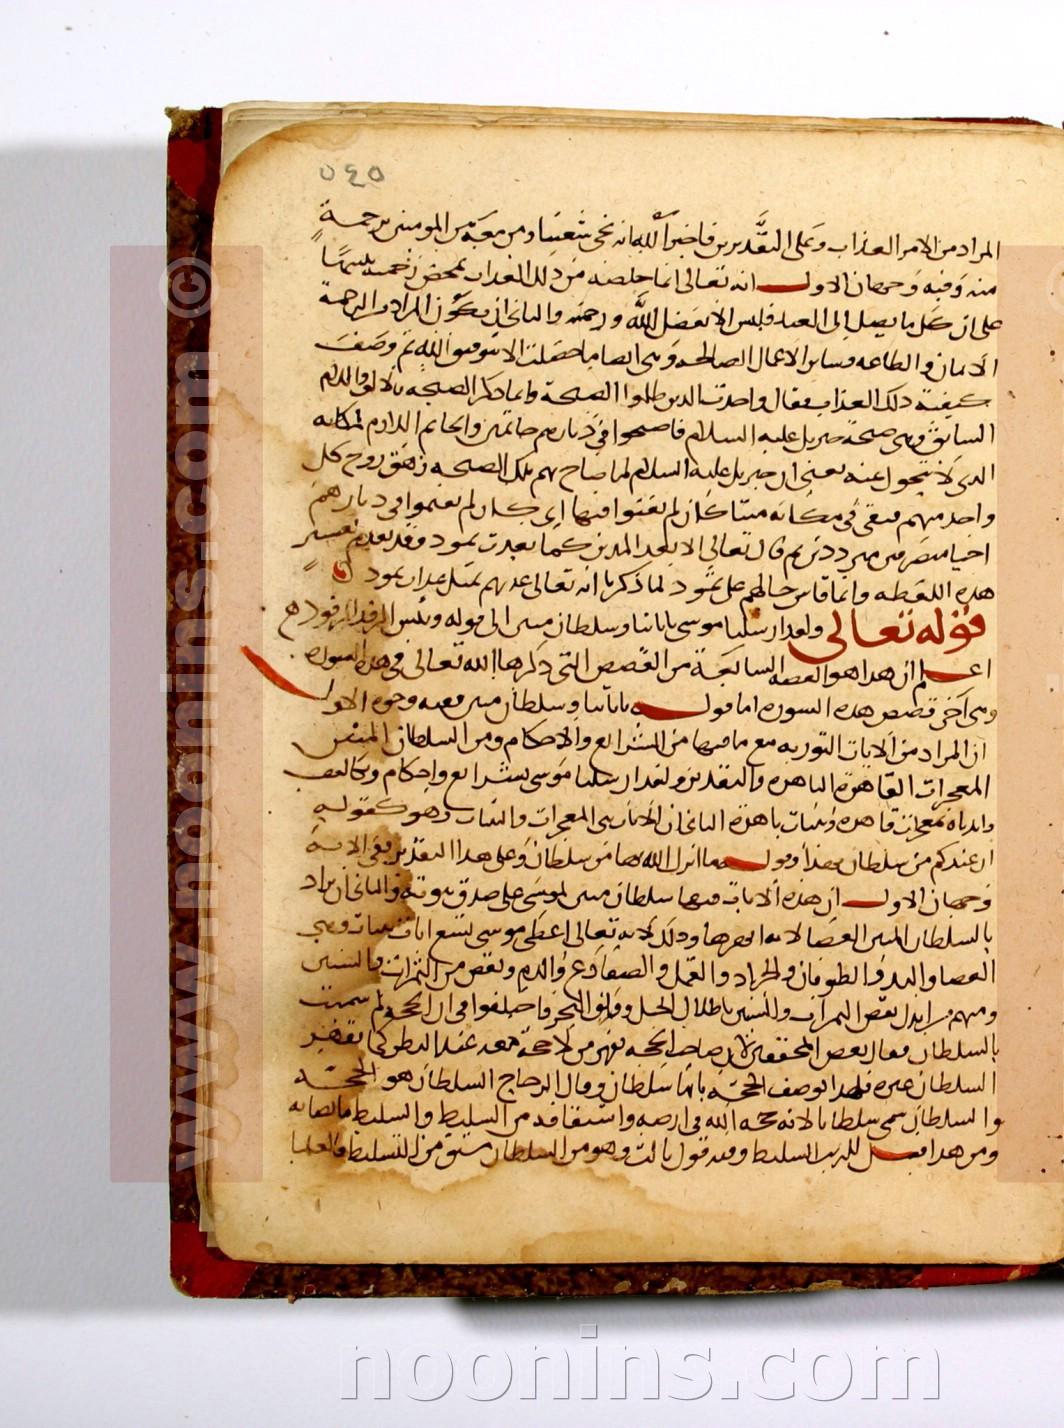 ٥٤٥
المراد من الامر العذاب وعلى التقديرين فاخبر الله انه نجى شعيبا ومن معه من المومنين برحمة
منه وفيه وجهان الاول انه تعالى انما خلصه من ذلك العذاب لمحض رحمته تنبيها
على ان كل ما يصل الى العبد فليس الا بفضل الله ورحمته والثاني ان يكون المراد من الرحمة
الايمان والطاعه وساير الاعمال الصالحه وهي ايضا ما حصلت الا بتوفيق الله ثم وصف
كيفية ذلك العذاب فقال واخذت الذين ظلموا الصيحة وانما ذكر الصيحه بالالف واللام
السابق وهي صيحة جبريل عليه السلام فاصبحوا في ديارهم جاثمين والجاثم اللازم لمكانه
الذي لا يتحول عنه يعني ان جبريل عليه السلام لما صاح بهم تلك الصيحه زهق روح كل
واحد منهم فبقي في مكانه ميتا كان لم يغنوا فيها اي كان لم يقيموا في ديارهم
احيا متصرفين مترددين ثم قال تعالى الا بعدا لمدين كما بعدت ثمود وقد تقدم تفسير
هذه اللفظه وانما قاس حالهم على ثمود لما ذكرنا انه تعالى عذبهم بمثل عذاب ثمود
قوله تعالى ولقد ارسلنا موسى باياتنا وسلطان مبين الى قوله وبئس الرفد المرفود
اعلم ان هذا هو القصه السابعة من القصص التي ذكرها الله تعالى في هذه السوره
وهي آخر قصص هذه السوره اما قوله باياتنا وسلطان مبين ففيه وجوه الاول
ان المراد من الايات التوريه مع ما فيها من الشرايع والاحكام ومن السلطان المبين
المعجزات القاهرة الباهره والتقدير ولقد ارسلنا موسى بشرايع واحكام وتكاليف
وايدناه بمعجزات قاهره وبينات باهرة الثاني ان الايات هي المعجزات والبينات وهو كقوله
ان عندكم من سلطان بهذا وقوله ما انزل الله بها من سلطان وعلى هذا التقدير ففي الاية
وجهان الاول ان هذه الايات فيها سلطان مبين لموسى على صدق نبوته والثاني ان يراد
بالسلطان المبين العصا لانه ابهرها وذلك لانه تعالى اعطى موسى تسع ايات بينات وهي
العصا واليد والطوفان والجراد والقمل والضفادع والدم ونقص من الثمرات والسنين
ومنهم من ابدل نقص الثمرات والسنين باظلال الجبل وفلق البحر فاختلفوا في ان الحجه لم سميت
بالسلطان فقال بعض المحققين لان صاحب الحجه يقهر من لا حجة معه عند النظر كما يقهر
السلطان غيره فلهذا توصف الحجة بانها سلطان وقال الزجاج السلطان هو الحجه
والسلطان سمي سلطانا لانه حجه الله في ارضه واشتقاقه من السليط والسليط ما يضا به
ومن هذا قيل للزيت السليط وفيه قول ثالث وهو من السلطان مشتق من التسليط فالعلما
www.noonins.com ©
noonins.com